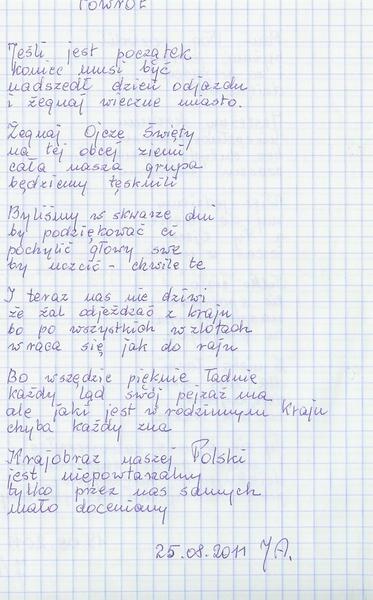 POWRÓT
Jeśli jest początek
koniec musi być
nadszedł dzień odjazdu
i żegnaj wieczne miasto.
Żegnaj Ojcze Święty
na tej obcej ziemi
cała nasza grupa
będziemy tęsknili
Byliśmy w skwarze dni
by podziękować ci
pochylić głowy swe
by uczcić - chwile te
I teraz nas nie dziwi
że żal odjeżdżać z kraju
bo po wszystkich wzlotach
wraca się jak do raju
Bo wszędzie pięknie ładnie
każdy ląd swój pejzaż ma
ale jaki jest w rodzinnym kraju
chyba każdy zna
Krajobraz naszej Polski
jest niepowtarzalny
tylko przez nas samych
mało doceniany
25.08.2011 JA.